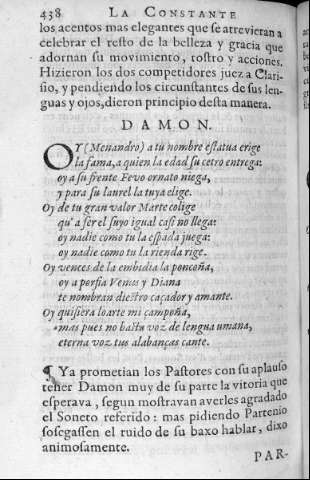 438 LA CONSTANTE
los acentos mas elegantes que se atrevieran a
celebrar el resto de la belleza y gracia que
adornan su movimiento, rostro y acciones.
Hizieron los dos competidores juez a Clari-
sio, y pendiendo los circunstantes de sus len-
guas y ojos, dieron principio desta manera.
DAMON.
OY (Menandro) a tu nombre estatua erige
la fama, a quien la edad su cetro entrega:
oy a su frente Fevo ornato niega,
y para su laurel la tuya elige.
Oy de tu gran valor Marte colige
qu'a ser el suyo igual casi no llega:
oy nadie como tu la espada juega:
oy nadie como tu la rienda rige.
Oy vences de la embidia la ponçoña,
oy a porfia Venus y Diana
te nombran diestro caçador y amante.
Oy quisiera loarte mi campoña,
mas pues no basta voz de lengua umana,
eterna voz tus alabanças cante.
¶ Ya prometian los Pastores con su aplauso
tener Damon muy de su parte la vitoria que
esperava, segun mostravan averles agradado
el Soneto referido: mas pidiendo Partenio
sosegassen el ruido de su baxo hablar, dixo
animosamente.
PAR-